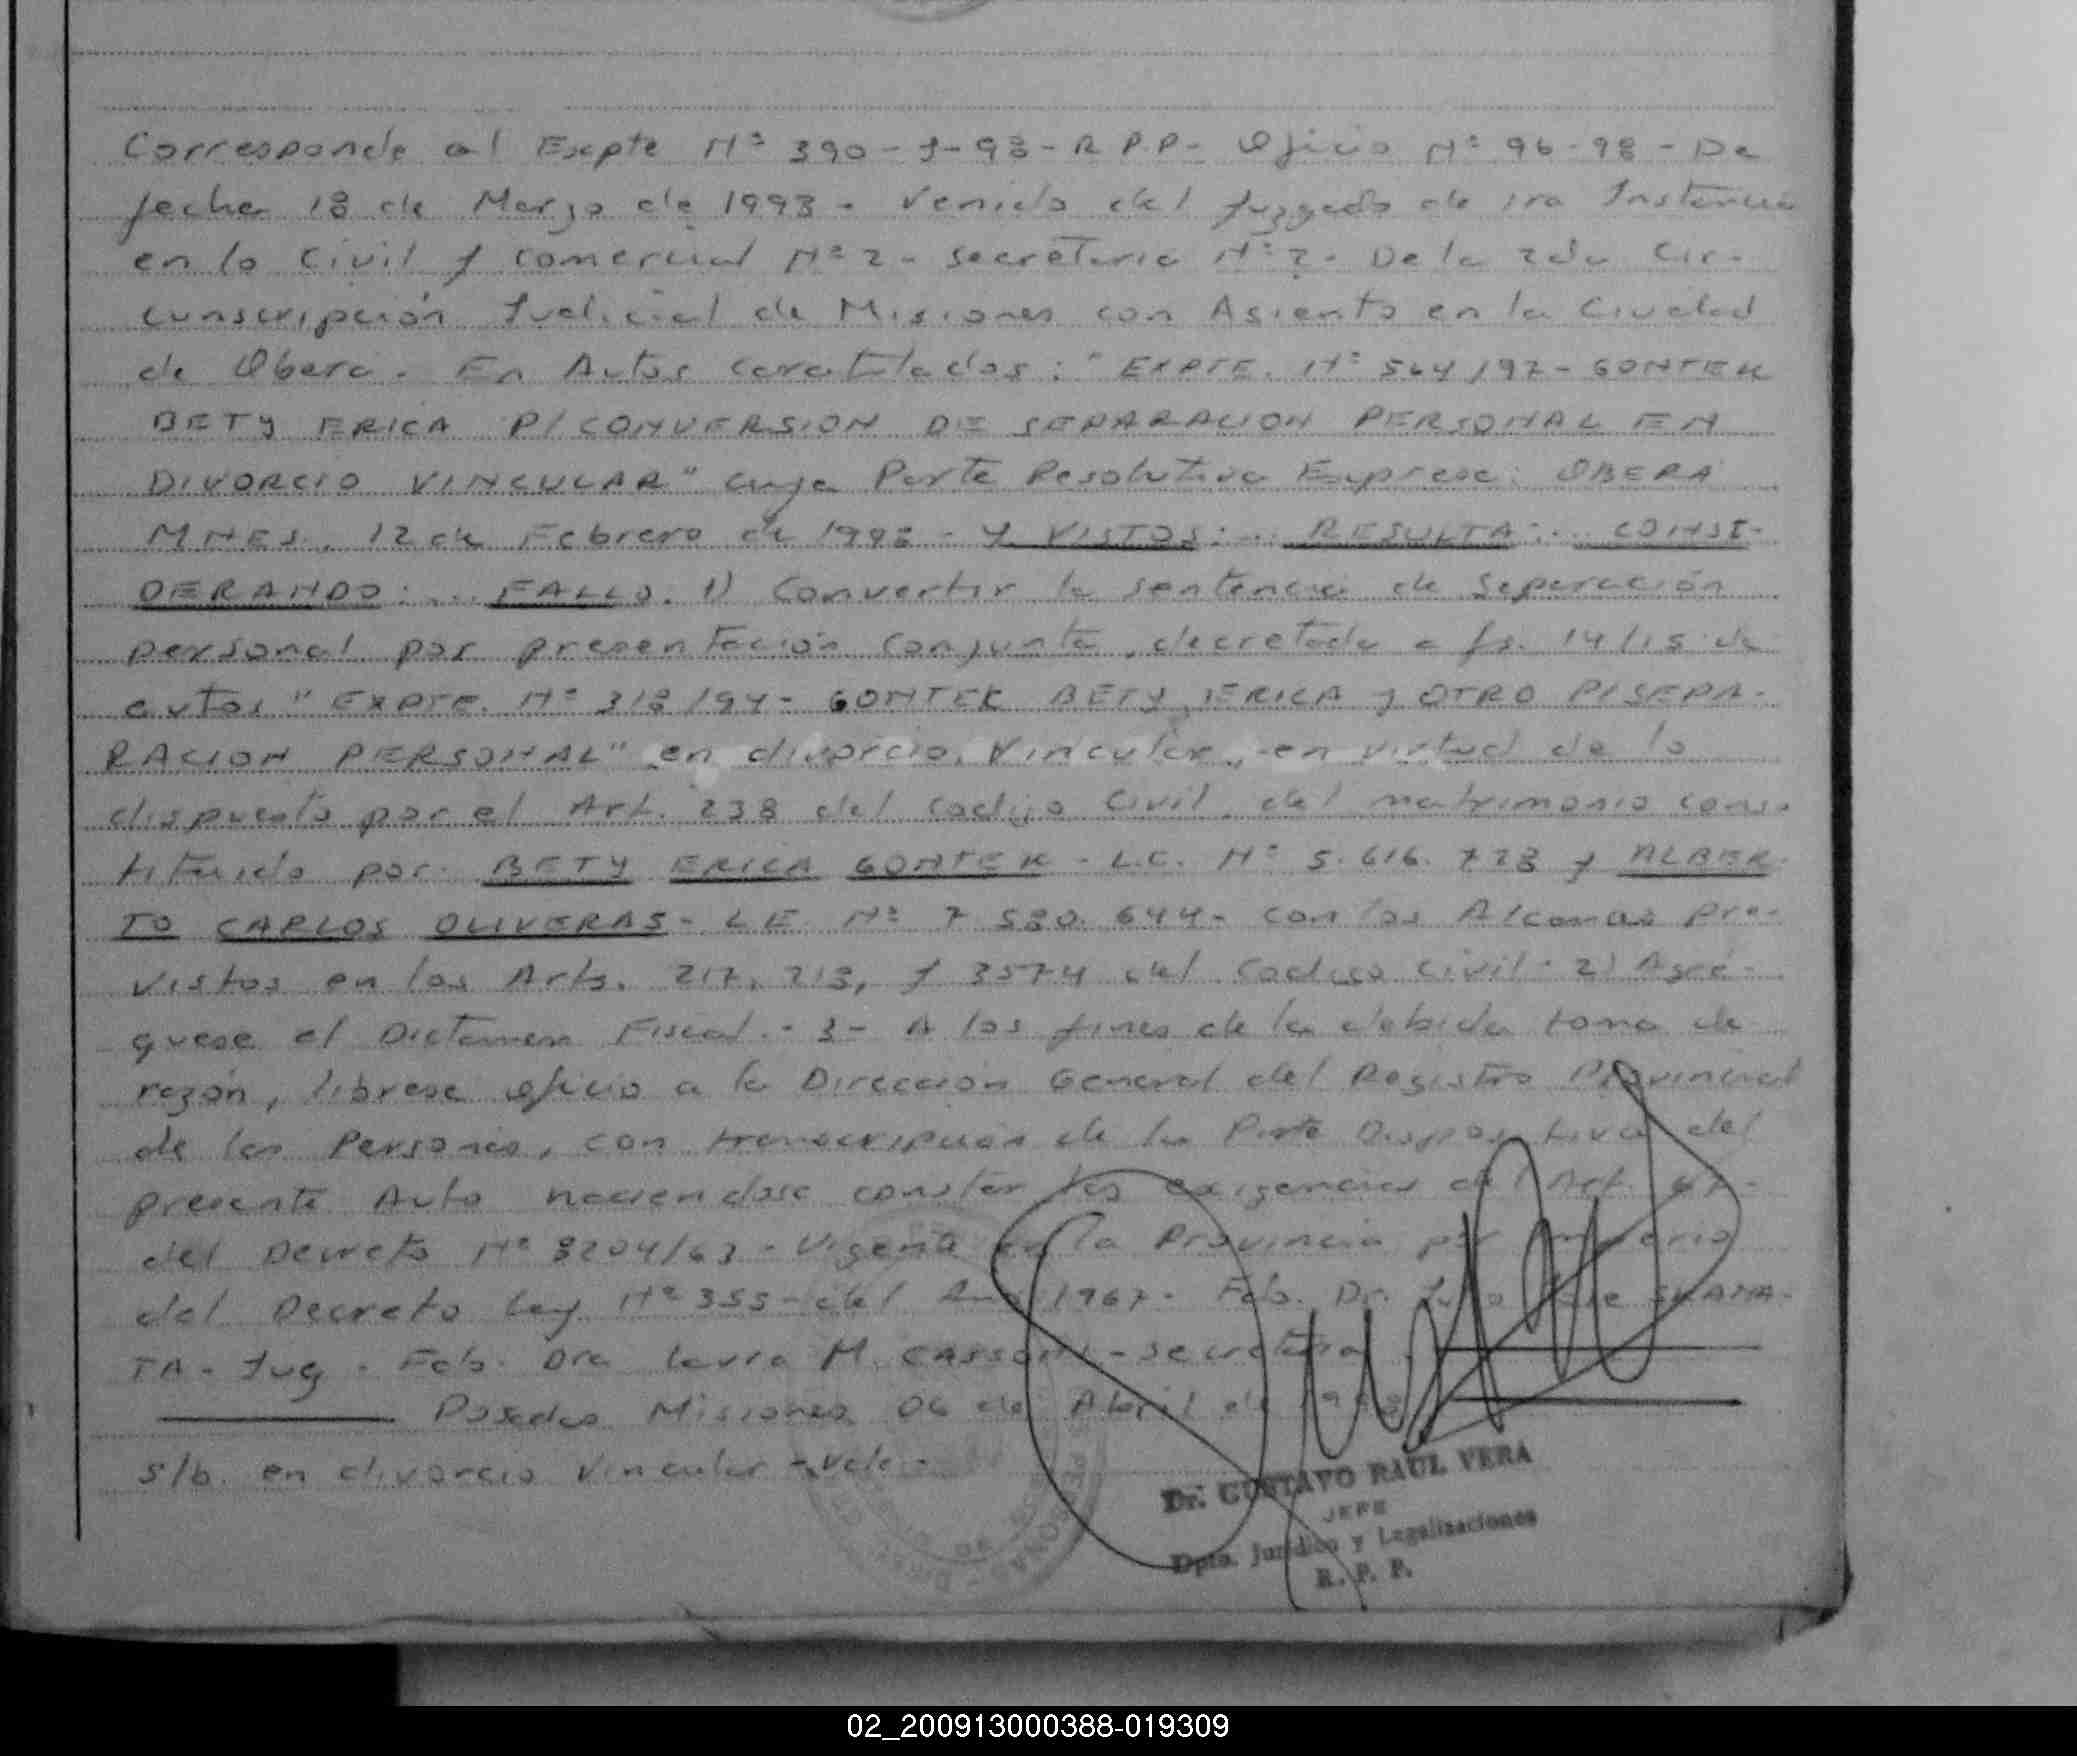 Corresponde al Expte Nº 390-J-98-R.P.P- Oficio Nº 96-98- De
fecha 18 de Marzo de 1998. Venido del Juzgado de 1ra Instancia
en lo Civil y Comercial Nº 2- Secretaria Nº 2. De la 2da Cir-
cunscripción Judicial de Misiones con Asiento en la Ciudad
de Obera. En Autos Caratulados: "EXPTE. Nº 564/97- GONTEK
BETY ERICA P/CONVERSION DE SEPARACION PERSONAL EN
DIVORCIO VINCULAR" cuya Parte Resolutiva Expresa: OBERA
MNES. 12 de Febrero de 1998 - Y VISTOS:... RESULTA:... CONSI-
DERANDO:... FALLO. 1) Convertir la sentencia de Separación
personal por presentación conjunta, decretada a fs. 14/15 de
autos "EXPTE. Nº 318/94- GONTEK BETY ERICA y OTRO P/SEPA-
RACION PERSONAL" en divorcio vincular, en virtud de lo
dispuesto por el Art. 238 del Codigo Civil, del matrimonio cons-
tituido por BETY ERICA GONTEK - L.C. Nº 5.616.728 y ALBER-
TO CARLOS OLIVERAS- L.E. Nº 7.580.644- con los Alcances pre-
vistos en los Arts. 217, 218, y 3574 del Codigo Civil- 2) Agré-
guese el Dictamen Fiscal.- 3- A los fines de la debida toma de
razón, librese oficio a la Dirección General del Registro Provincial
de las Personas, con transcripción de la Parte Dispositiva del
presente Auto haciendose constar las exigencias del Art.
del Decreto Nº 8204/63- Vigente en la Provincia por Imperio
del Decreto Ley Nº 355- del Año 1967- Fdo. Dr.
TA- Jug. Fdo. Dra Laura M. CASSONI- Secretaria
Posadas Misiones 06 de Abril de 1998
s/b. en divorcio vincular - vale -
Dr. GUSTAVO RAUL VERA
JEFE
Dpto. Jurídico y Legalizaciones
R. P. P.
02_200913000388-019309